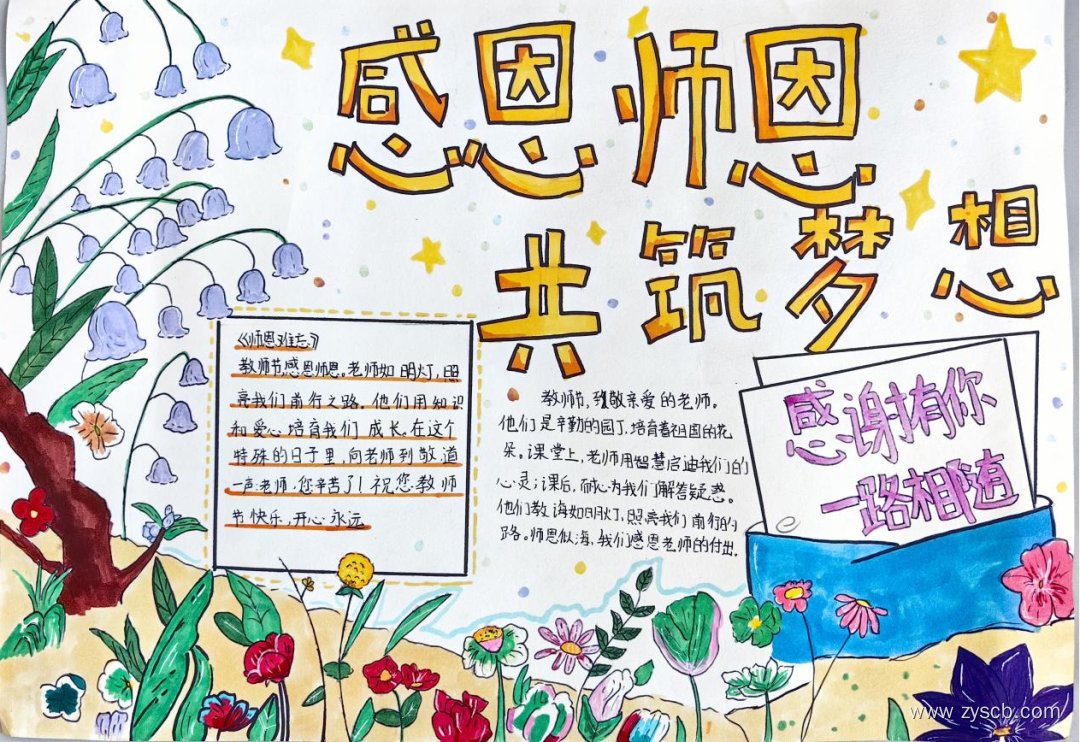 感恩师恩
共筑梦想
《师恩难忘》
教师节感恩师恩。老师如明灯，照
亮我们前行之路。他们用知识
和爱心培育我们成长。在这个
特殊的日子里，向老师到敬道
一声：老师，您辛苦了！祝您教师
节快乐，开心永远
教师节，致敬亲爱的老师。
他们是辛勤的园丁，培育着祖国的花
朵。课堂上，老师用智慧启迪我们的
心灵；课后，耐心为我们解答疑惑。
他们教诲如明灯，照亮我们前行的
路。师恩似海，我们感恩老师的付出。
感谢有你
一路相随
www.zyscb.com